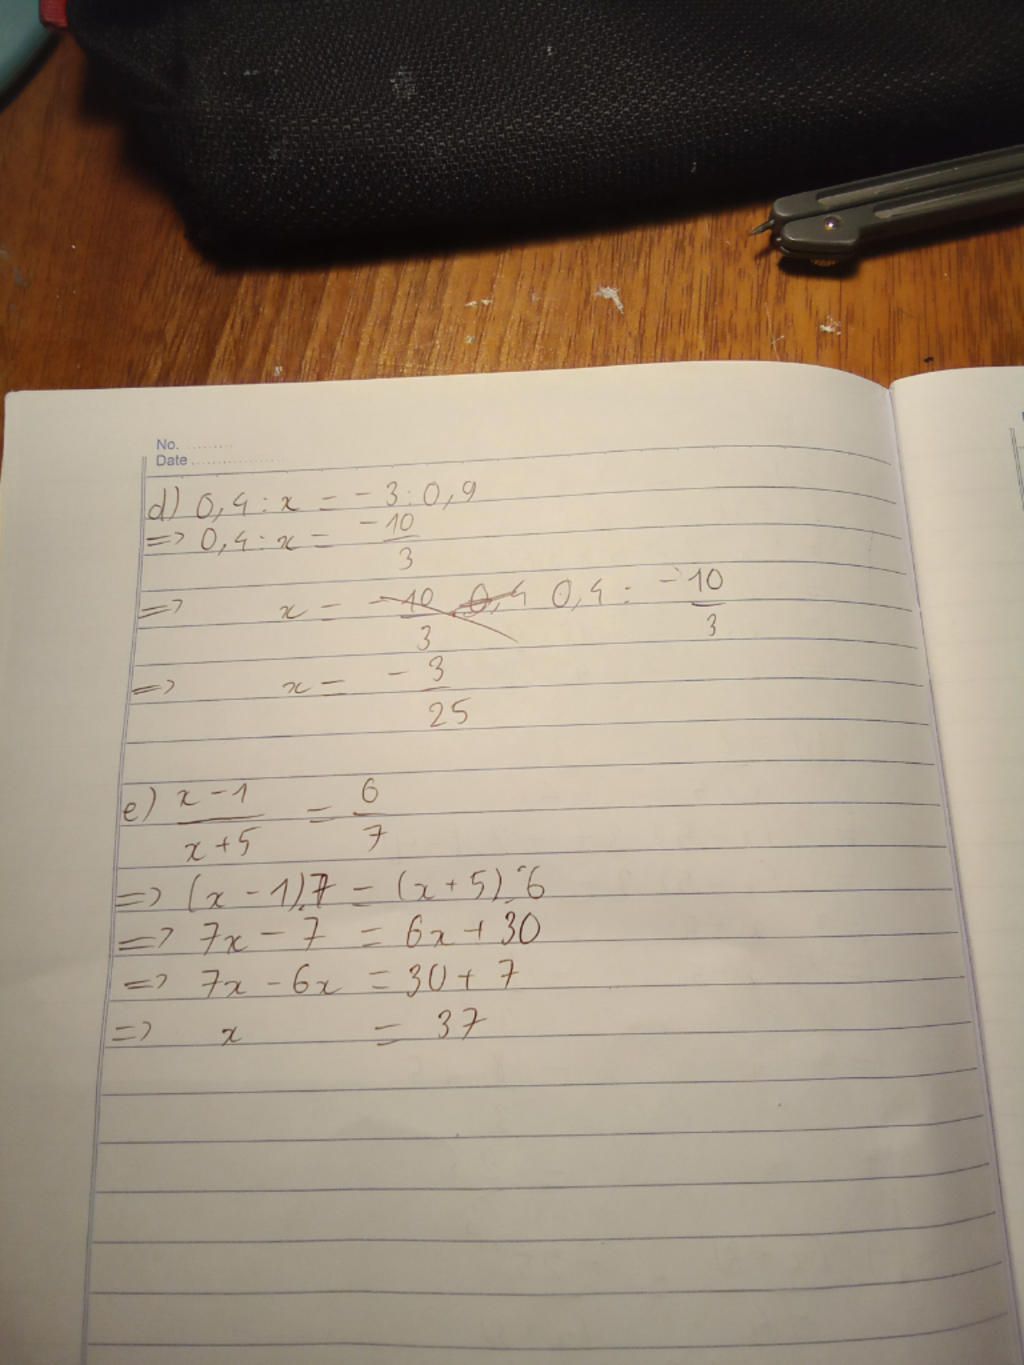 No. .........
Date .................
d) 0,4 : x = - 3 : 0,9
=> 0,4 : x = -10/3
=> x = -10/3 . 0,4 0,4 : -10/3
=> x = -3/25
e) x-1/x+5 = 6/7
=> (x - 1).7 = (x + 5).6
=> 7x - 7 = 6x + 30
=> 7x - 6x = 30 + 7
=> x = 37